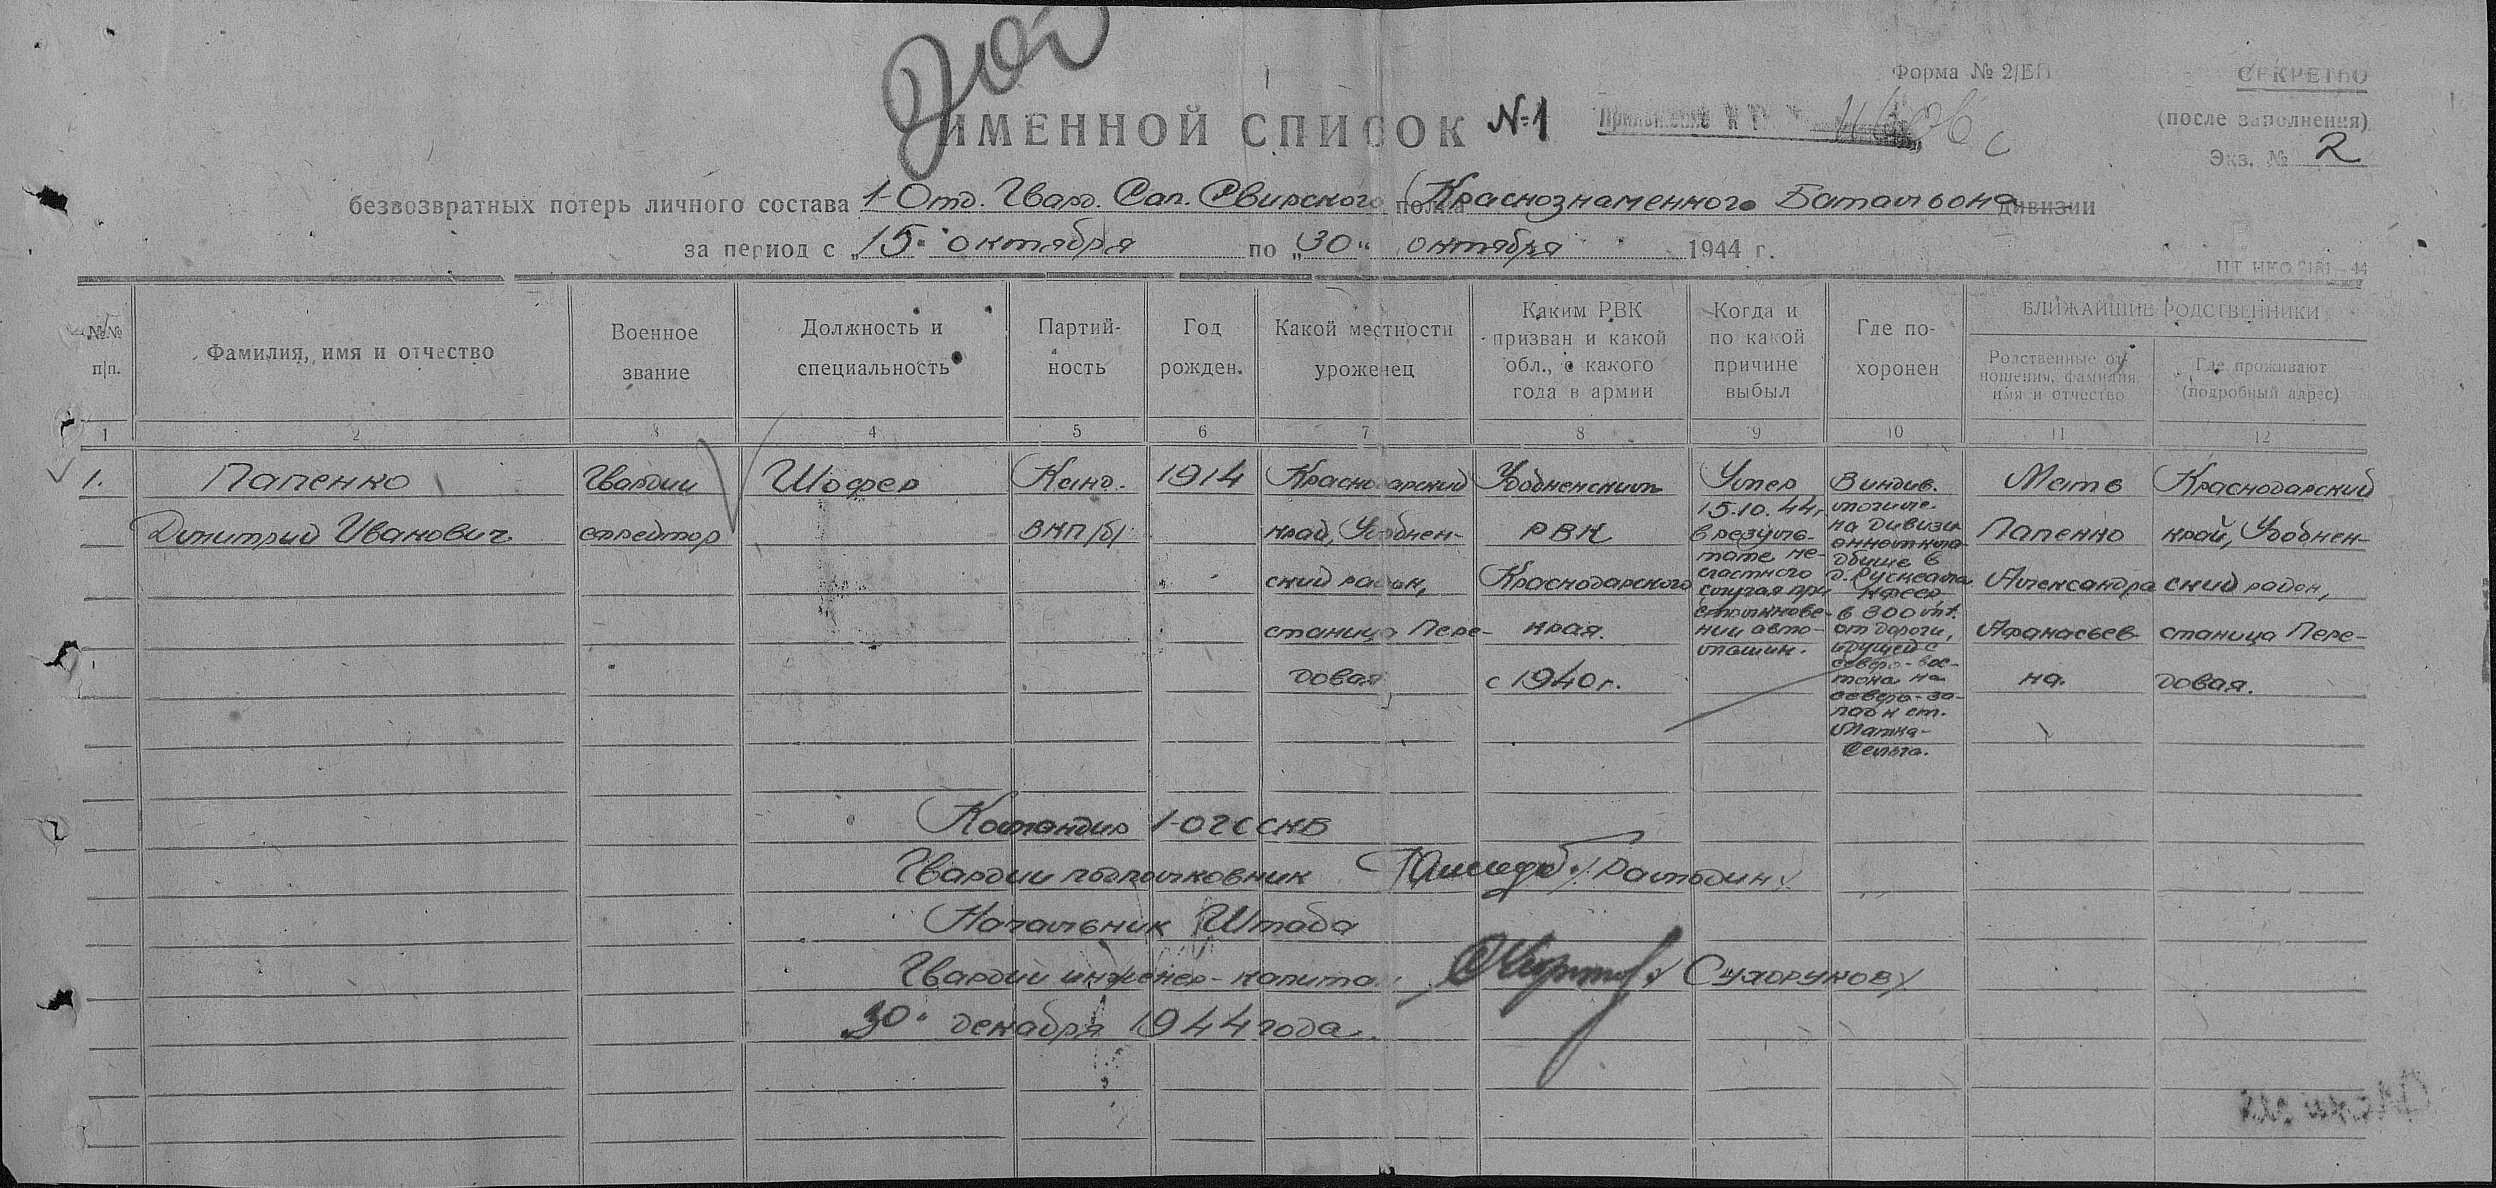 Форма № 2/БП
СЕКРЕТНО
ИМЕННОЙ СПИСОК №1
(после заполнения)
Экз. № 2
безвозвратных потерь личного состава 1-Отд. Гвард. Сап. Свирского полка Краснознаменного Батальона дивизии
за период с „15“ октября по „30“ октября 1944 г.
№№ п/п.
Фамилия, имя и отчество
Военное звание
Должность и специальность
Партий-
ность
Год рожден.
Какой местности уроженец
Каким РВК
призван и какой
обл., с какого
года в армии
Когда и
по какой
причине
выбыл
Где по-
хоронен
БЛИЖАЙШИЕ РОДСТВЕННИКИ
Родственные от-
ношения, фамилия,
имя и отчество
Где проживают
(подробный адрес)
1 2 3 4 5 6 7 8 9 10 11 12
1.
Папенко
Димитрий Иванович
Гвардии
ефрейтор
Шофер
Канд.
ВКП/б/
1914
Краснодарский
край, Удобнен-
ский район,
станица Пере-
довая
Удобненским
РВК
Краснодарского
края.
с 1940 г.
Умер
15.10.44,
в резуль-
тате не-
счастного
случая при
столкнове-
нии авто-
машин.
В индив.
могиле
на дивизи
онном кла-
дбище в
д. Рускеала
КФССР,
в 300 мт.
от дороги,
идущей с
северо-вос-
тока на
северо-за-
пад к ст.
Матка-
Сельга.
Мать
Папенко
Александра
Афанасьев-
на.
Краснодарский
край, Удобнен-
ский район,
станица Пере-
довая.
Командир 1-ОГССКБ
Гвардии подполковник
Начальник Штаба
Гвардии инженер-капитан /Сухоруков/
„30“ декабря 1944 года.